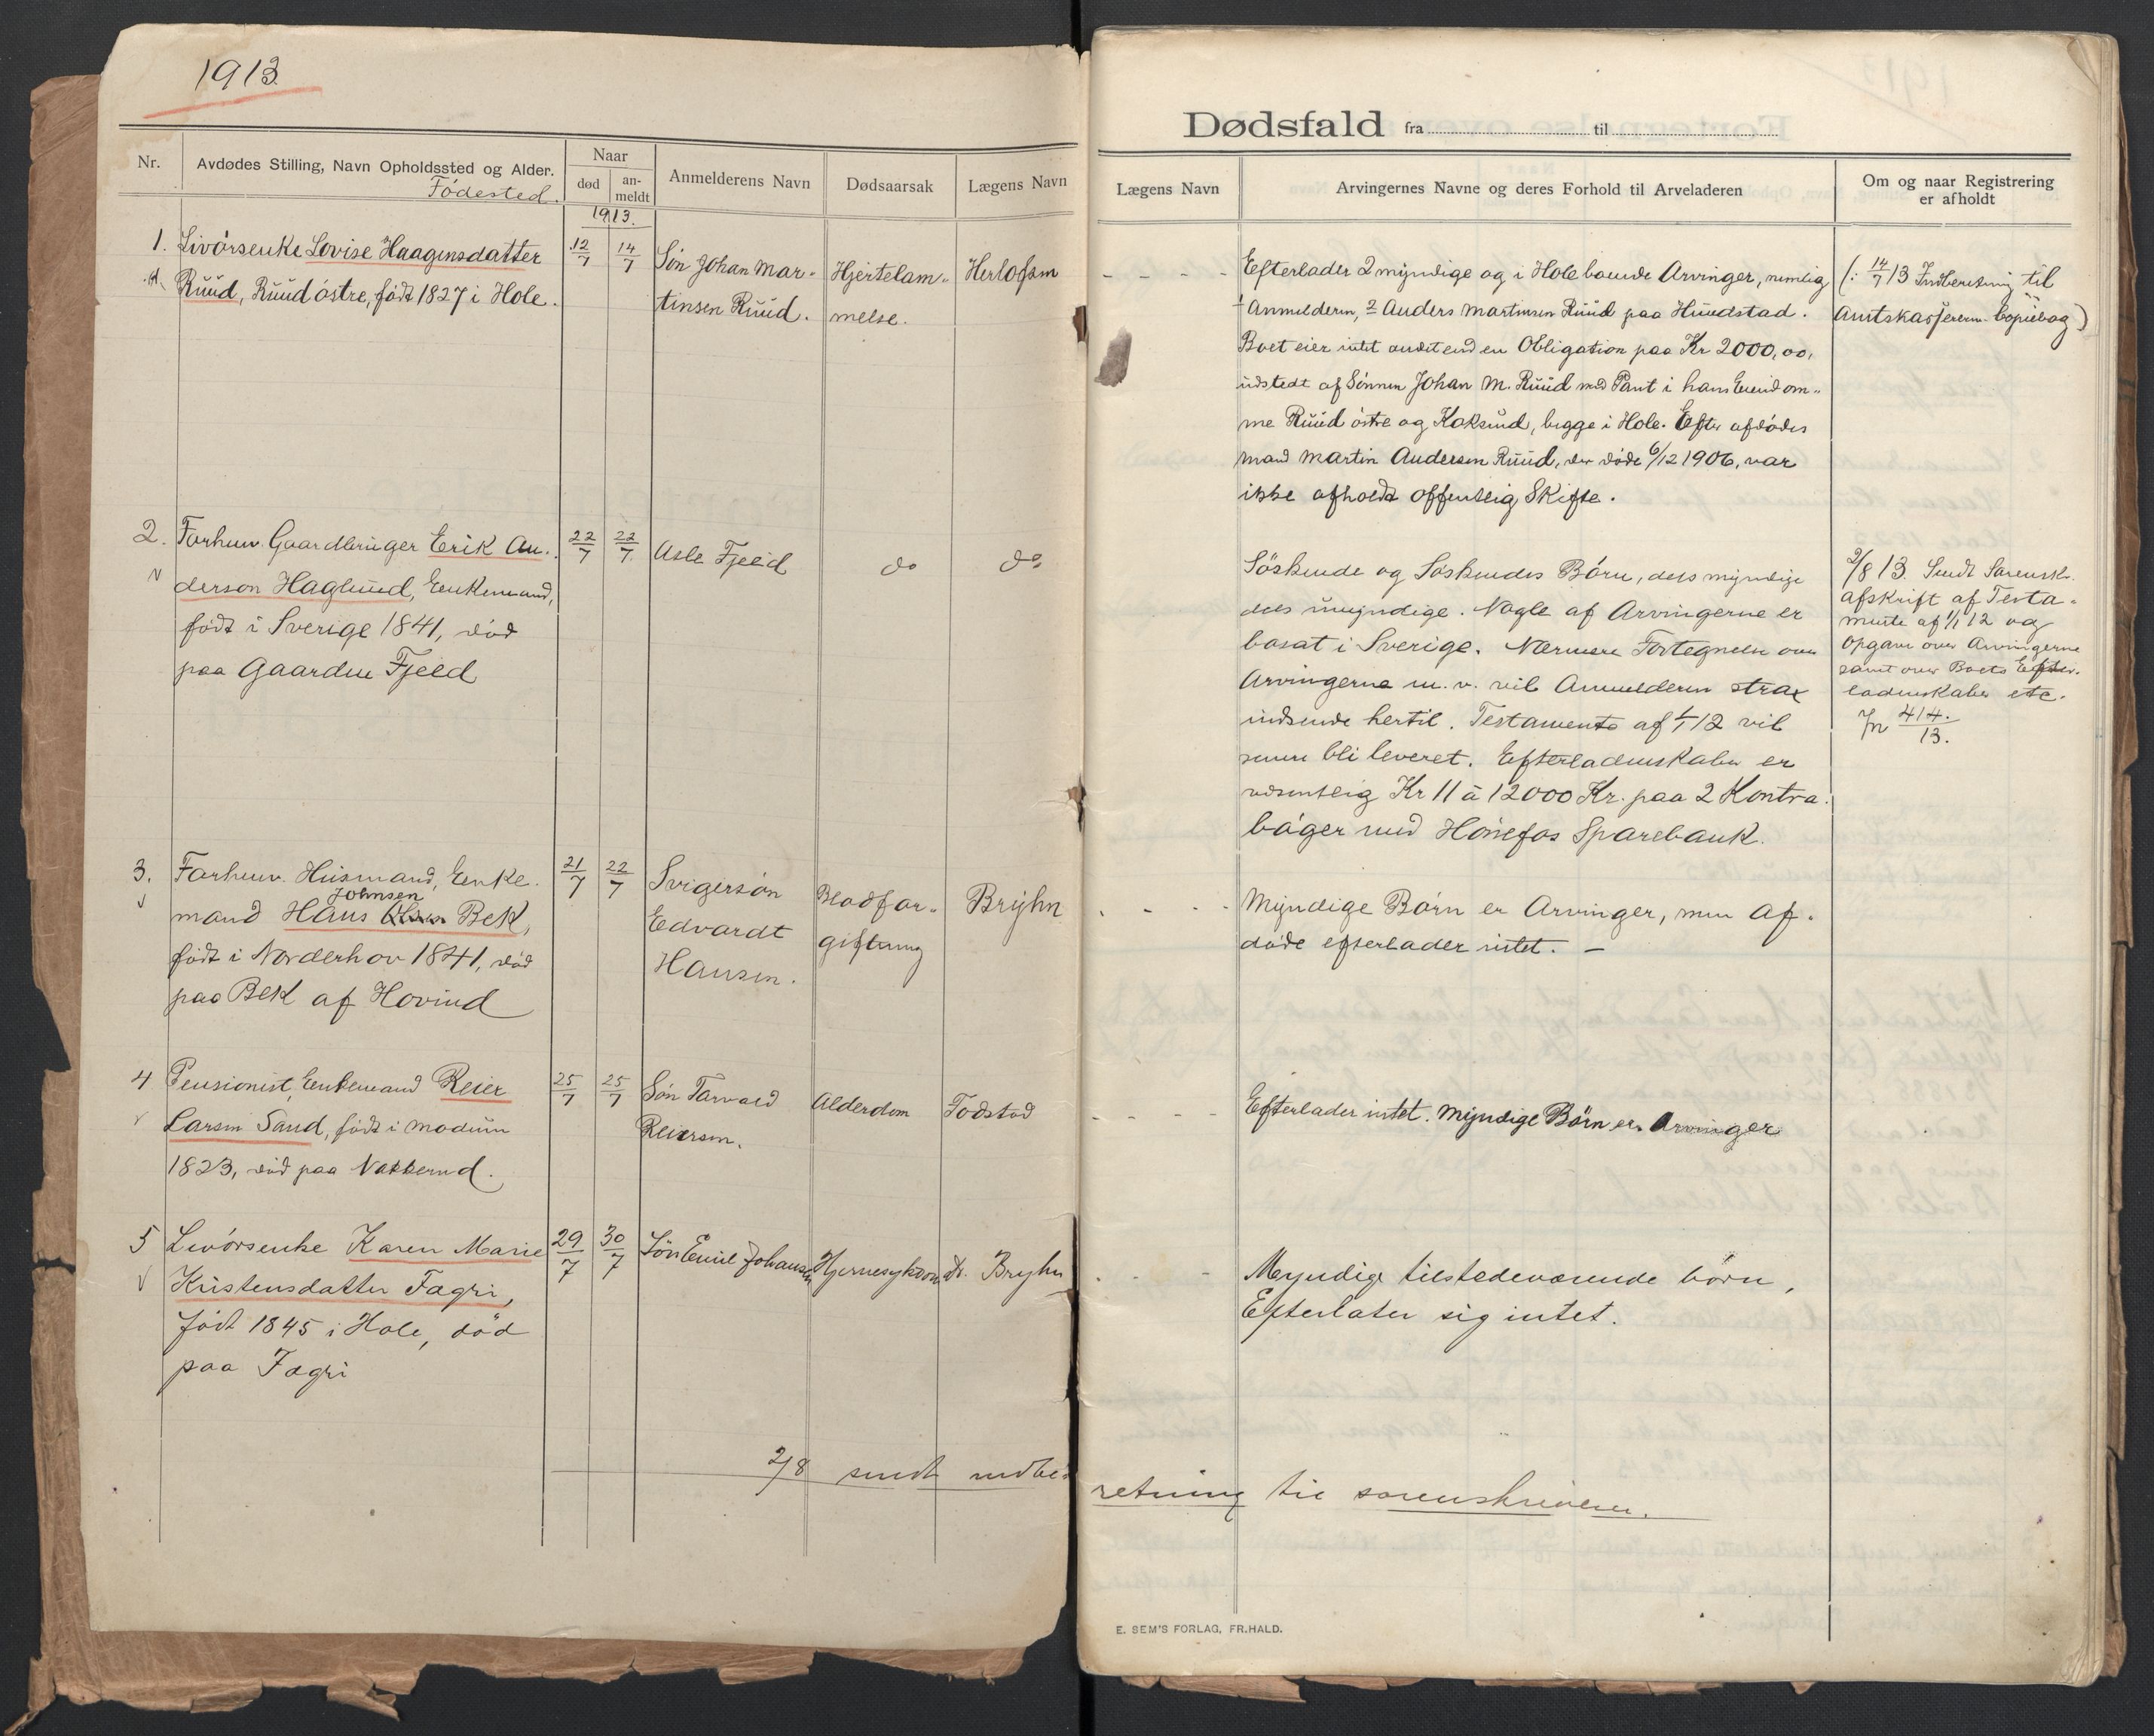 1913
Nr.
Avdødes Stilling, Navn Opholdssted og Alder.
Fødested.
Naar
død
an-
meldt
Anmelderens Navn
Dødsaarsak
Lægens Navn
1913.
1. Livørsenke Lovise Haagensdatter
Ruud, Ruud østre, født 1827 i Hole.
12/7
14/7
Søn Johan Mar-
tinsen Ruud.
Hjertelam-
melse.
Herlofsen
2. Forhenv. Gaardbruger Erik An-
derson Haglund, Enkemand,
født i Sverige 1841, død
paa Gaarden Fjeld
22/7
22/7
Asle Fjeld
do
do
3. Forhenv. Husmand, Enke-
Johnsen
mand Haus Bek,
født i Norderhov 1841, død
paa Bek af Hovind
21/7
22/7
Svigersøn
Edvardt
Hansen.
Blodfor-
giftning
Bryhn
4 Pensionist, Enkemand Reier
Larsen Sand, født i Modum
1823, død paa Nakkerud.
25/7
25/7
Søn Torvald
Reiersen.
Alderdom
Todstad
5 Livørsenke Karen Marie
Kristensdatter Fagri,
født 1845 i Hole, död
paa Fagri
29/7
30/7
Søn Emil Johansen
Hjernesykdom
dr. Bryhn
2/8 sendt indbe-
Dødsfald fra til
Lægens Navn
Arvingernes Navne og deres Forhold til Arveladeren
Om og naar Registrering
er afholdt
Efterlader 2 myndige og i Hole boende Arvinger, nemlig
1 Anmelderen, 2 Anders Martinsen Ruud paa Hundstad.
Boet eier intet andet end en Obligation paa Kr 2000,00,
udstedt af Sønnen Johan M. Ruud med Pant i hans Eiendom-
me Ruud østre og Koksund, begge i Hole. Efter afdødes
mand Martin Andersen Ruud, der døde 6/12 1906, var
ikke afholdt offentlig Skifte.
(: 14/7 13 Indberetning til
Amtskassereren Copiebog)
Söskende og Söskendes Børn, dels myndige
dels umyndige. Nogle af Arvingerne er
bosat i Sverige. Nærmere Fortegnelse over
Arvingerne m. v. vil Anmelderen strax
indsende hertil. Testamente af 1/1 12 vil
senere bli leveret. Efterladenskaber er
væsentlig Kr 11 à 12000 Kr. paa 2 Kontra-
bøger med Hønefos Sparebank.
2/8 13. Sendt Sorensk.
afskrift af Testa-
mente af 1/1 12 og
Opgave over Arvingerne
samt over Boets Efter-
ladenskaber etc.
Jn 414./13.
Myndige Børn er Arvinger, men af-
døde efterlader intet. —
Efterlader intet. Myndige Børn er Arvinger
Myndige tilstedeværende börn,
Efterlater sig intet.
retning til sorenskriveren.
E. SEM'S FORLAG, FR.HALD.